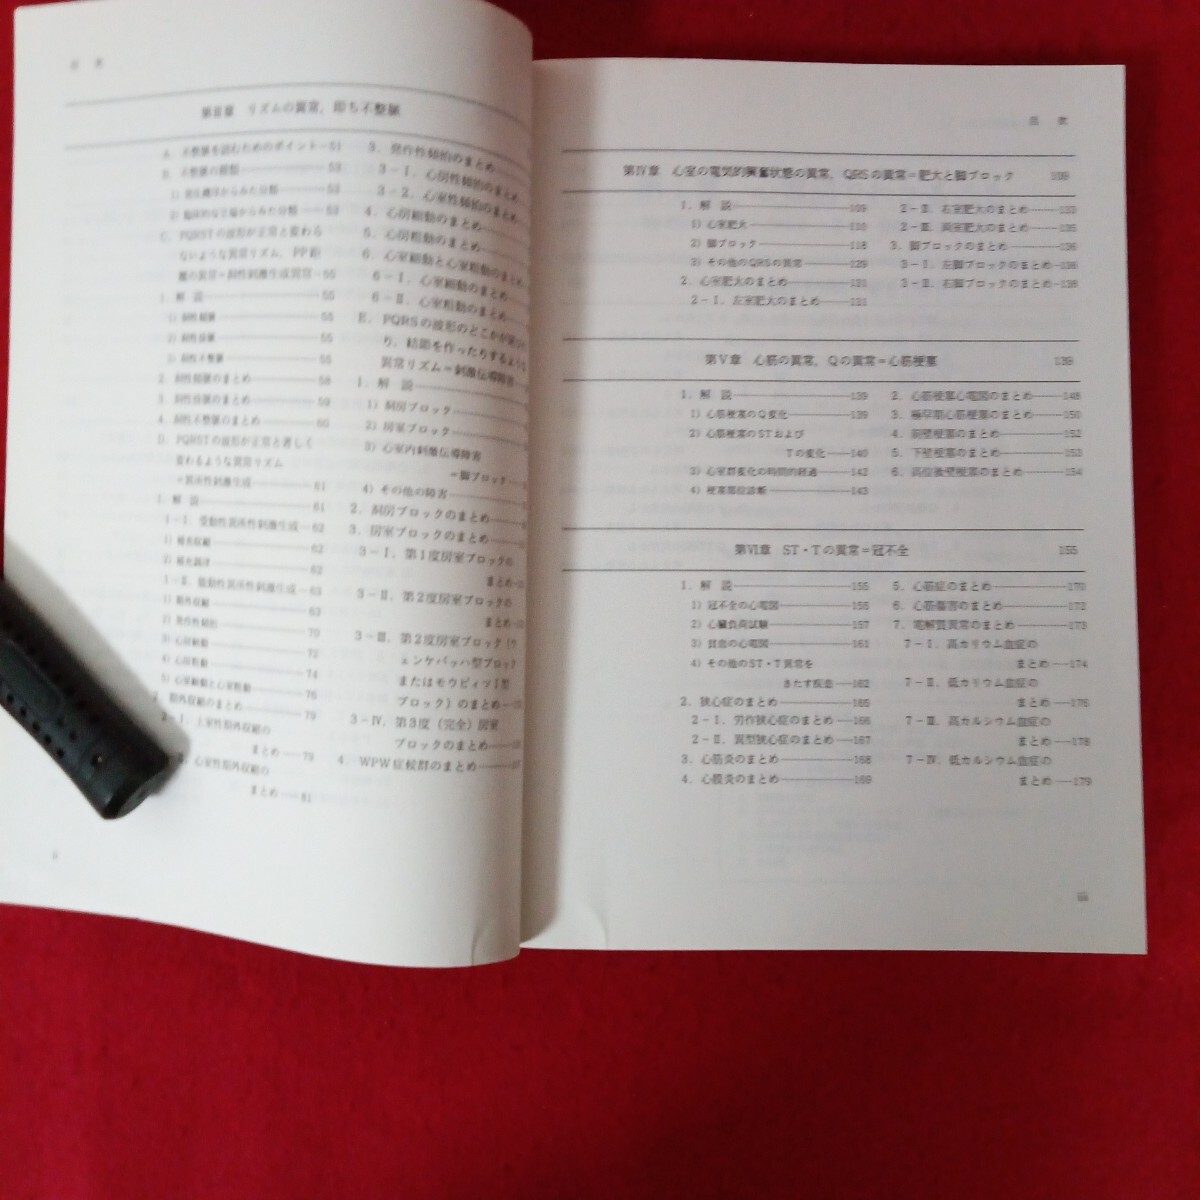 目 次
第Ⅲ章 リズムの異常，即ち不整脈
A．不整脈を読むためのポイント—51
B．不整脈の種類——53
C．PQRSTの波形が正常と変わら
ないような異常リズム，PP間
隔の異常＝洞性刺激生成異常—55
1．解 説——55
1）洞性頻脈——55
2）洞性徐脈——55
3）洞性不整脈——55
2．洞性頻脈のまとめ——58
3．洞性徐脈のまとめ——59
4．洞性不整脈のまとめ——60
D．PQRSTの波形が正常と著しく
変わるような異常リズム
＝異所性刺激生成——61
1．解 説——61
1－Ⅰ．受動性異所性刺激生成—62
1）補充収縮——62
2）補充調律——62
1－Ⅱ．能動性異所性刺激生成—63
1）期外収縮——63
2）発作性頻拍——70
3）心房細動——72
4）心房粗動——74
5）心室細動と心室粗動——76
2．期外収縮のまとめ——79
2－Ⅰ．上室性期外収縮の
まとめ—79
心室性期外収縮の
まとめ—81
3．発作性頻拍のまとめ——
3－1．心房性頻拍のまとめ—
3－2．心室性頻拍のまとめ—
4．心房細動のまとめ——
5．心房粗動のまとめ——
6．心室細動と心室粗動のまとめ
6－Ⅰ．心室細動のまとめ—
6－Ⅱ．心室粗動のまとめ—
E．PQRSの波形のどこかが
り，結節を作ったりするような
異常リズム＝刺激伝導障害—
1．解 説——
1）洞房ブロック——
2）房室ブロック——
3）心室内刺激伝導障害
＝脚ブロック—
4）その他の障害——
2．洞房ブロックのまとめ——
3．房室ブロックのまとめ——
3－Ⅰ．第1度房室ブロックの
まとめ—
3－Ⅱ．第2度房室ブロックの
まとめ—
3－Ⅲ．第2度房室ブロック（ウ
ェンケバッハ型ブロック
またはモウビィツⅠ型
ブロック）のまとめ—
3－Ⅳ．第3度（完全）房室
ブロックのまとめ—
4．WPW症候群のまとめ——
目 次
第Ⅳ章 心室の電気的興奮状態の異常，QRSの異常＝肥大と脚ブロック 109
1．解 説——109
1）心室肥大——110
2）脚ブロック——118
3）その他のQRSの異常——129
2．心室肥大のまとめ——131
2－Ⅰ．左室肥大のまとめ——131
2－Ⅱ．右室肥大のまとめ——133
2－Ⅲ．両室肥大のまとめ——135
3．脚ブロックのまとめ——136
3－Ⅰ．左脚ブロックのまとめ—136
3－Ⅱ．右脚ブロックのまとめ—138
第Ⅴ章 心筋の異常，Qの異常＝心筋梗塞 139
1．解 説——139
1）心筋梗塞のQ変化——139
2）心筋梗塞のSTおよび
Tの変化——140
3）心室群変化の時間的経過——142
4）梗塞部位診断——143
2．心筋梗塞心電図のまとめ——148
3．極早期心筋梗塞のまとめ——150
4．前壁梗塞のまとめ——152
5．下壁梗塞のまとめ——153
6．高位後壁梗塞のまとめ——154
第Ⅵ章 ST・Tの異常＝冠不全 155
1．解 説——155
1）冠不全の心電図——155
2）心臓負荷試験——157
3）貧血の心電図——161
4）その他のST・T異常を
きたす疾患—162
2．狭心症のまとめ——165
2－Ⅰ．労作狭心症のまとめ——166
2－Ⅱ．異型狭心症のまとめ——167
3．心筋炎のまとめ——168
4．心膜炎のまとめ——169
5．心筋症のまとめ——170
6．心筋傷害のまとめ——172
7．電解質異常のまとめ——173
7－Ⅰ．高カリウム血症の
まとめ—174
7－Ⅱ．低カリウム血症の
まとめ—176
7－Ⅲ．高カルシウム血症の
まとめ—178
7－Ⅳ．低カルシウム血症の
まとめ—179